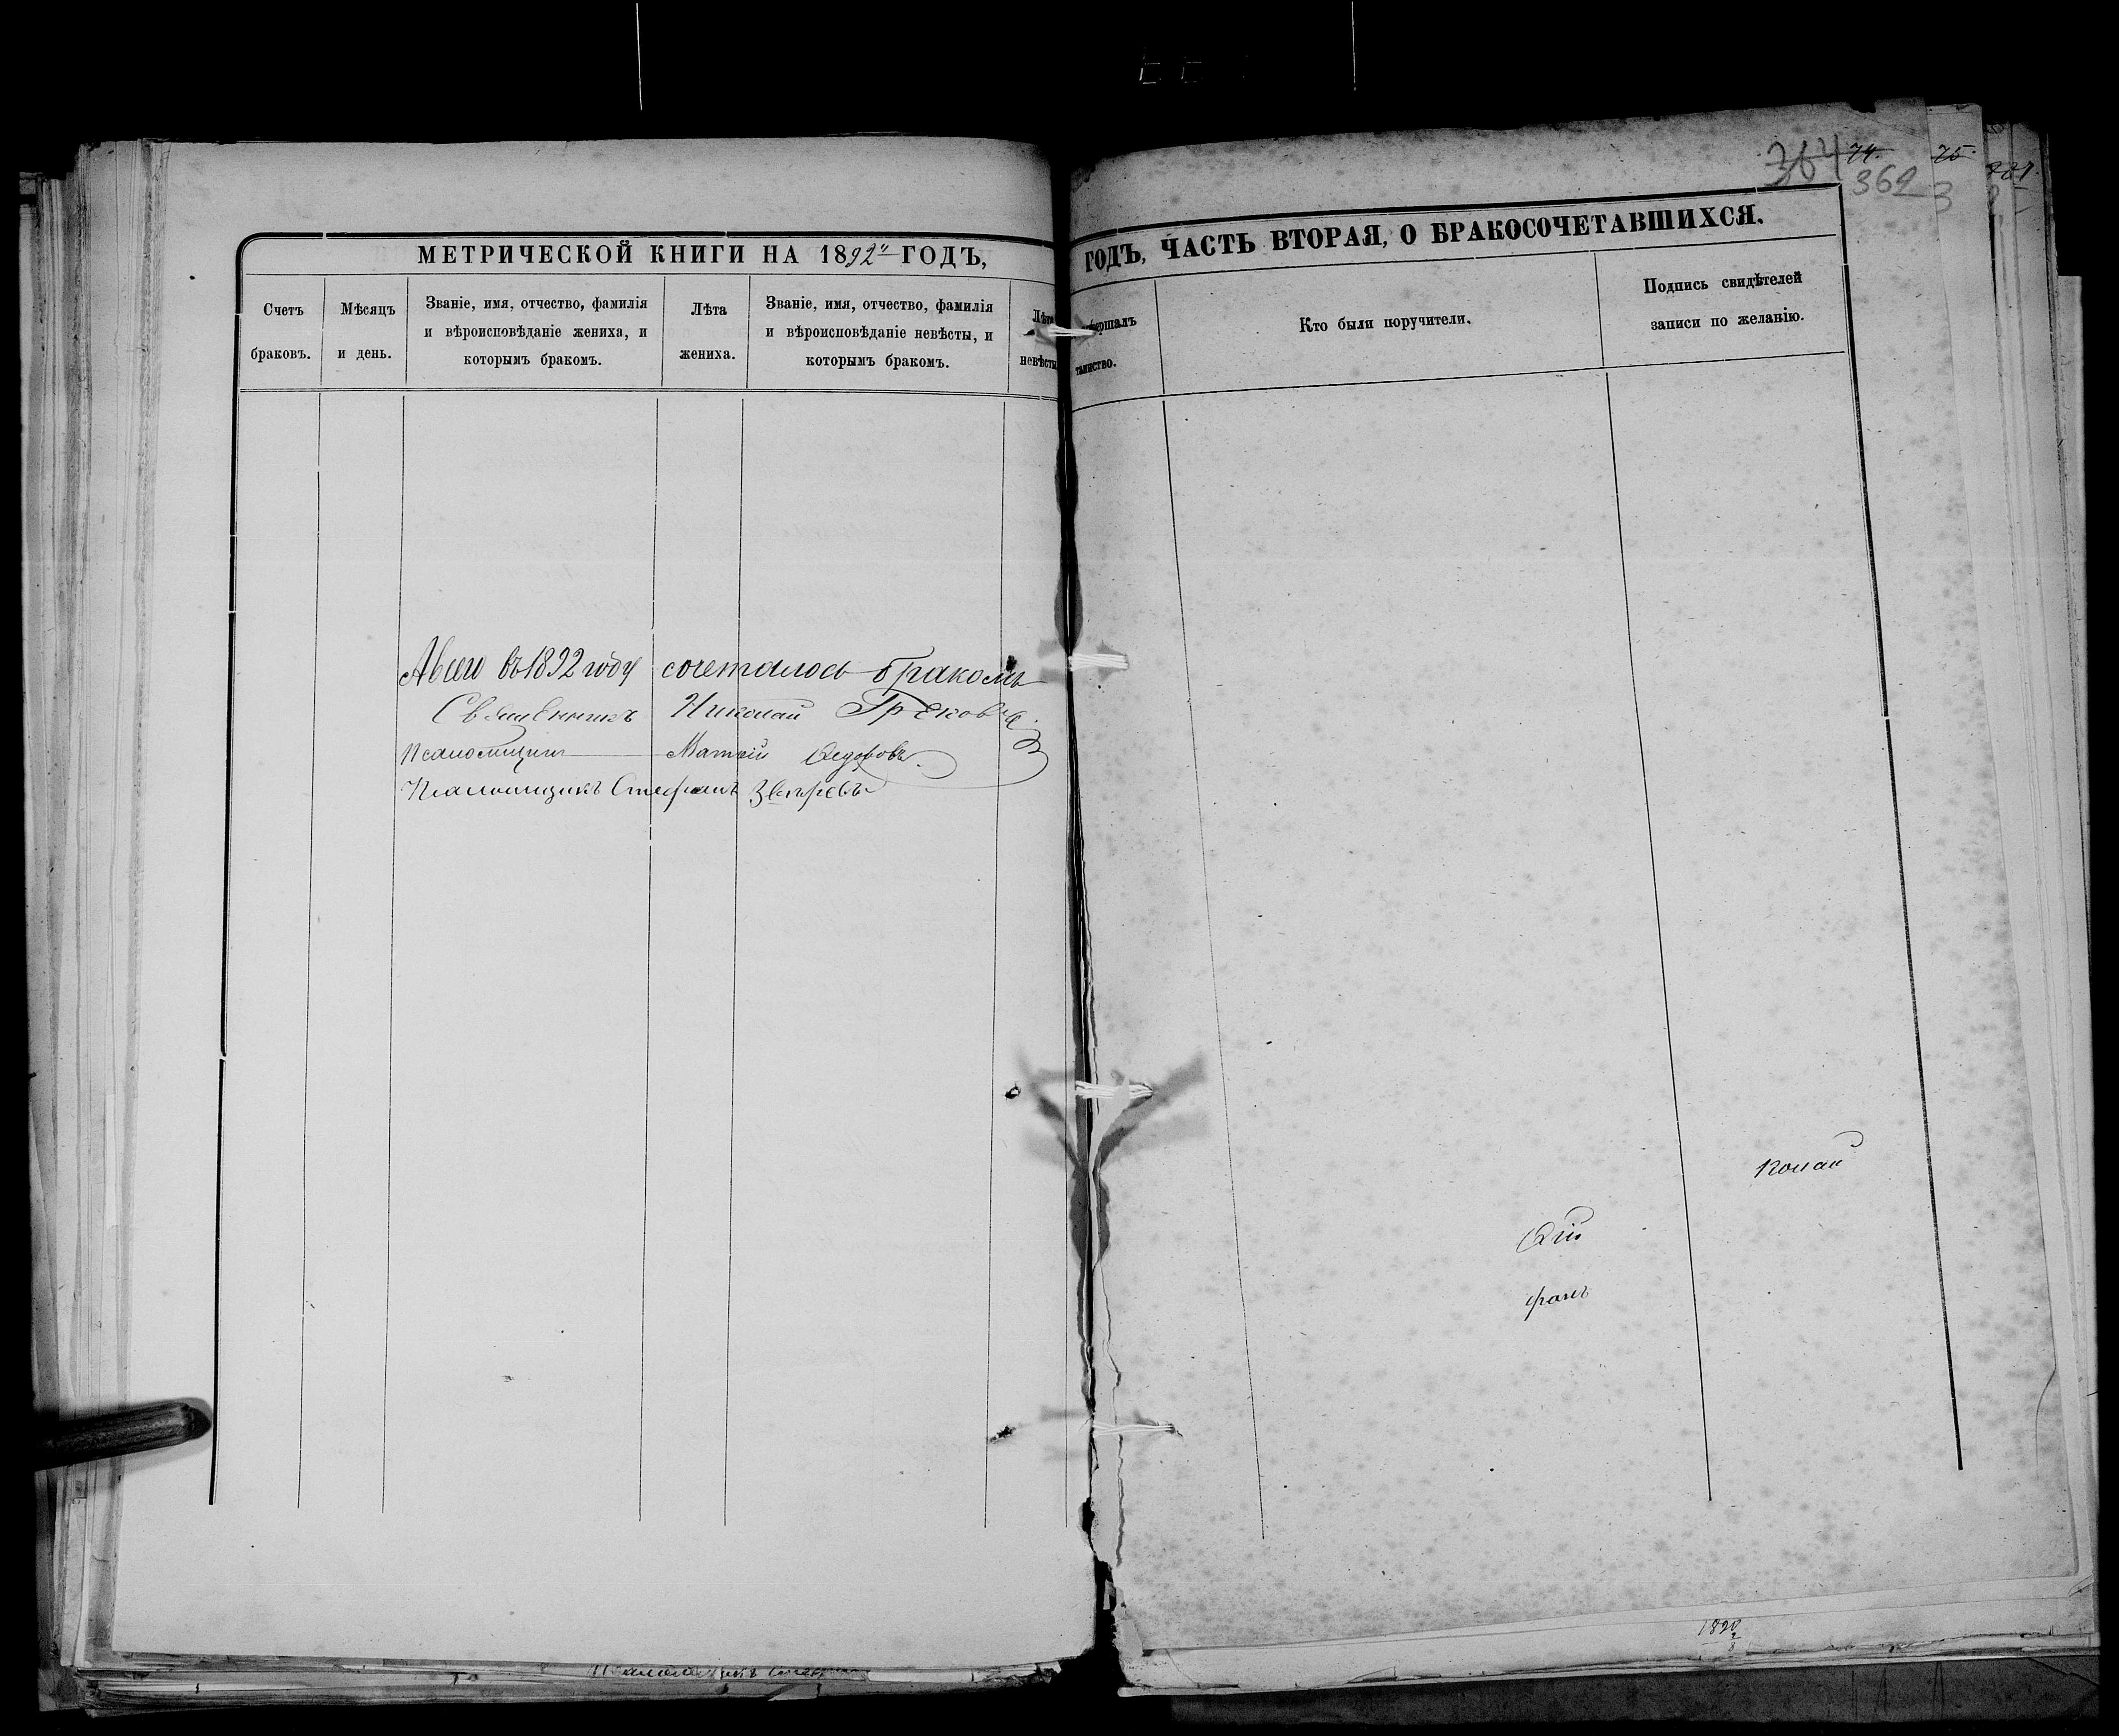 МЕТРИЧЕСКОЙ КНИГИ НА 1892й ГОДЪ,
Счетъ браковъ.
Мѣсяцъ и день.
Званіе, имя, отчество, фамилія
и вѣроисповѣданіе жениха, и
которымъ бракомъ.
Лѣта жениха.
Званіе, имя, отчество, фамилія
и вѣроисповѣданіе невѣсты, и
которымъ бракомъ.
Лѣта невѣсты
А всего въ 1892 году сочеталось бракомъ
Священникъ Николай Грековъ
Псаломщикъ Матѳій Ѳедоровъ.
Псаломщикъ Стефанъ Звѣревъ
74.
75.
362
3
ГОДЪ, ЧАСТЬ ВТОРАЯ, О БРАКОСОЧЕТАВШИХСЯ.
совершалъ
таинство.
Кто были поручители.
Подпись свидѣтелей
записи по желанію.
колай
ѳій
фанъ